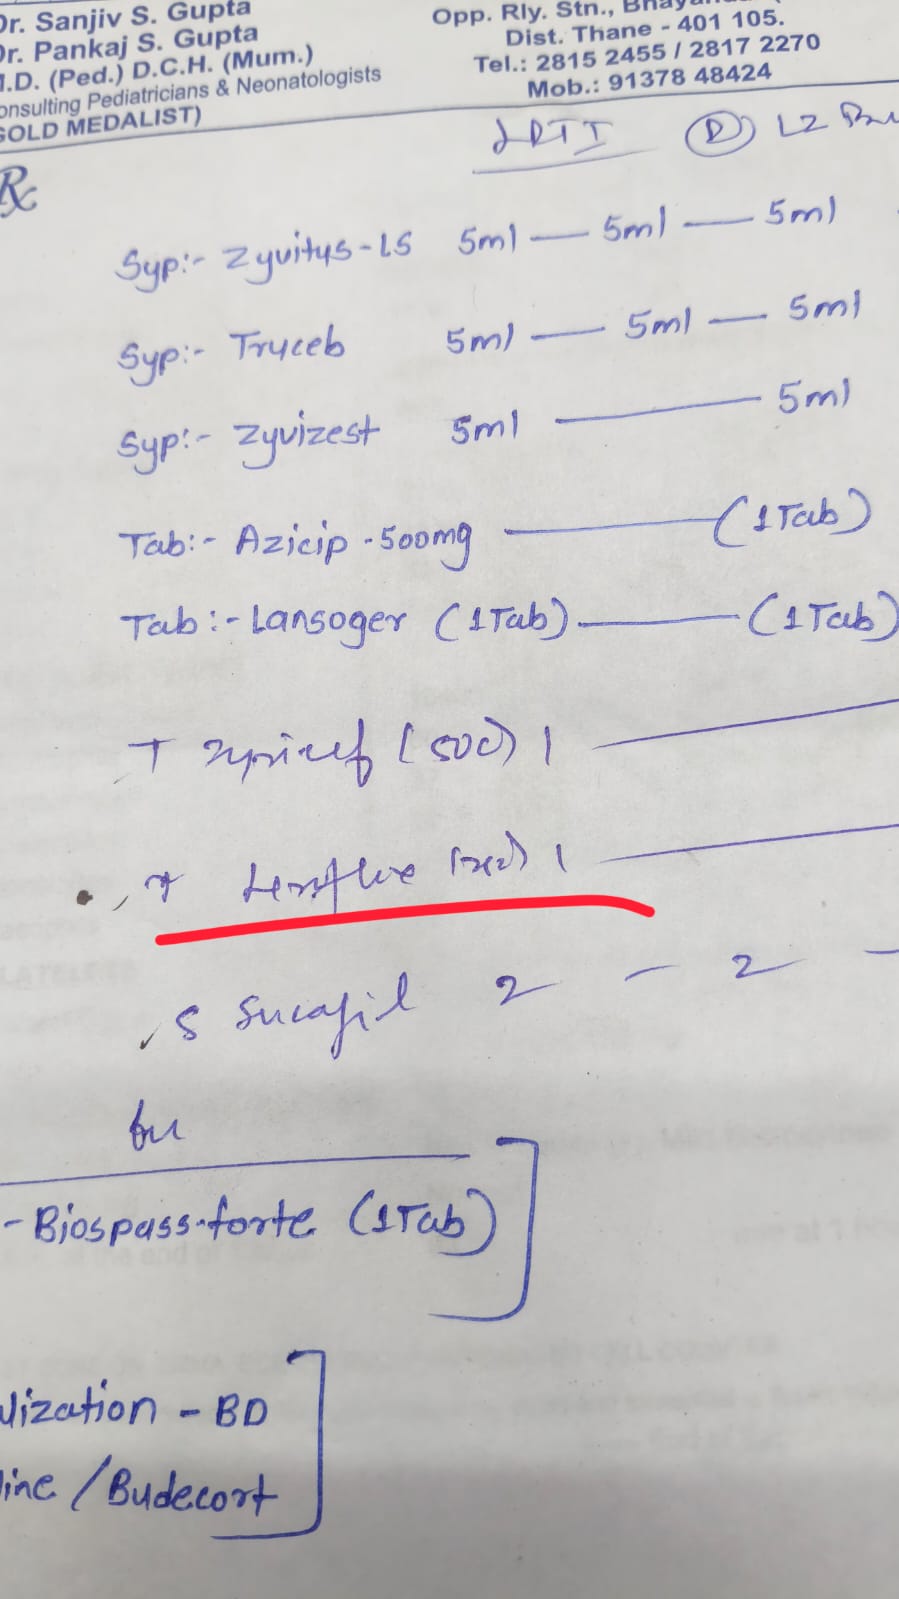 Dr. Sanjiv S. Gupta
Dr. Pankaj S. Gupta
M.D. (Ped.) D.C.H. (Mum.)
Consulting Pediatricians & Neonatologists
GOLD MEDALIST)
Opp. Rly. Stn.,
Dist. Thane - 401 105.
Tel.: 2815 2455 / 2817 2270
Mob.: 91378 48424
LRTI
Rx
Syp:- Zyvitys-LS 5ml — 5ml — 5ml
Syp:- Tryceb 5ml — 5ml — 5ml
Syp:- Zyvizest 5ml — 5ml
Tab:- Azicip -500mg — (1Tab)
Tab:- Lansoger (1Tab) — (1Tab)
T (500) 1 —
1 —
S Sucafil 2 — 2 —
-Biospass-forte (1Tab)
lization - BD
line / Budecort